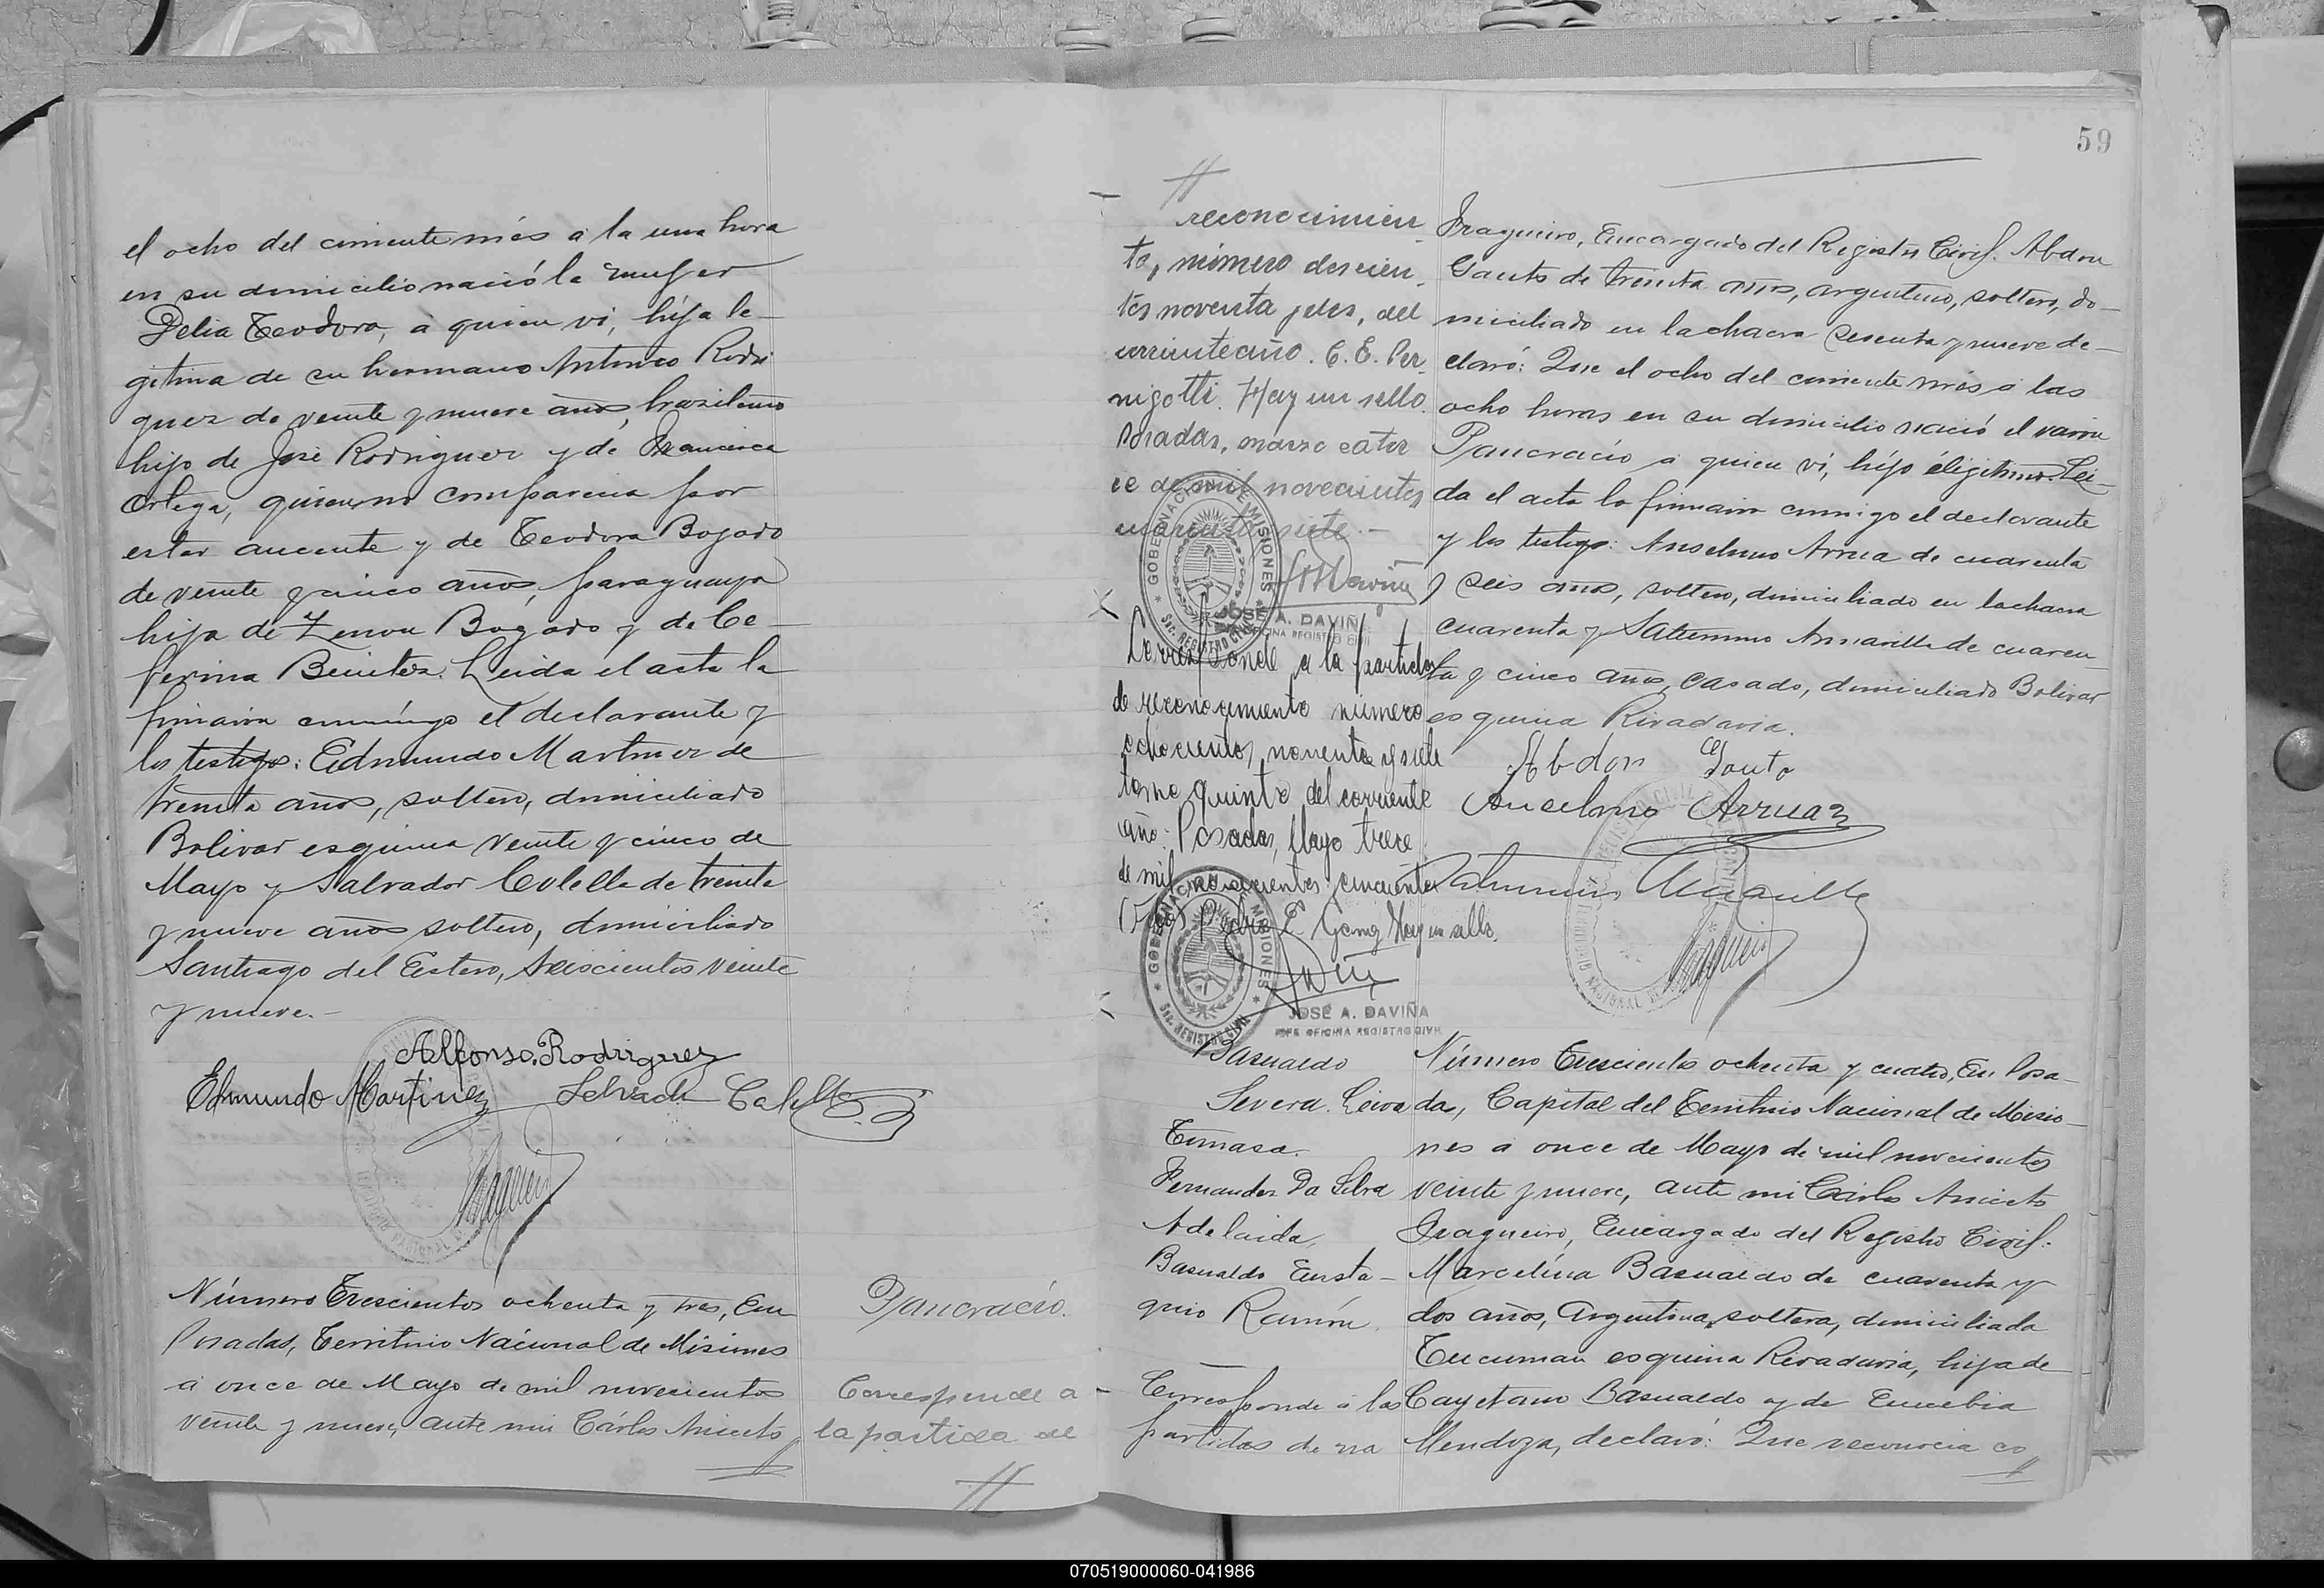 el ocho del corriente més á la una hora
en su domicilio nació la mujer
Delia Teodora, á quien ví, hija le-
gitima de su hermano Antonio Rodri
guez de veinte y nueve años, brasilero
hijo de José Rodriguez y de Francisca
Ortega, quien no comparecia por
estar aucente y de Teodora Bogado
de veinte y cinco años, paraguaya
hija de Zenon Bogado y de Ce-
ferina Benitez. Leida el acta la
firmaron conmigo el declarante y
los testigos: Edmundo Martinez de
treinta años, soltero, domiciliado
Bolivar esquina veinte y cinco de
Mayo y Salvador Colella de treinta
y nueve años soltero, domiciliado
Santiago del Estero, trescientos veinte
y nueve.-
Alfonso Rodriguez
Edmundo Martinez Salvador Calella
Número Trescientos ochenta y tres, En
Posadas, Territorio Nacional de Misiones
á once de Mayo de mil novecientos
veinte y nueve, ante mi Cárlos Aniceto
Pancracio.
Corresponde a
la partida de
59
reconocimien
to, número doscien
tos noventa y dos, del
corriente año. C. E. Per
nigotti. Hay un sello.
Posadas, marzo cator
ce de mil novecientos
cuarenta y siete.-
GOBERNACION DE MISIONES
Sec. REGISTRO CIVIL
JOSE A. DAVIÑA
OFICINA REGISTRO CIVIL
Corresponde a la partida
de reconocimiento número
ochocientos noventa y siete
tomo quinto del corriente
año.- Posadas, Mayo trece
de mil novecientos cincuenta
Pedro E. Gong Hay un sello.
GOBERNACION DE MISIONES
Sec. REGISTRO CIVIL
JOSÉ A. DAVIÑA
JEFE OFICINA REGISTRO CIVIL
Fraqueiro, Encargado del Registro Civil. Abdon
Gauto de treinta años, argentino, soltero, do-
miciliado en la chacra sesenta y nueve de-
claró: Que el ocho del corriente més á las
ocho horas en su domicilio nació el varon
Pancracio á quien ví, hijo iligitimo. Lei-
da el acta la firmaron conmigo el declarante
y los testigos: Anselmo Arrua de cuarenta
y seis años, soltero, domiciliado en la chacra
cuarenta y Saturnino Amarilla de cuaren
ta y cinco años, casado, domiciliado Bolivar
esquina Rivadavia.
Abdon Gauto
Anselmo Arrua
Saturnino Amarilla
Basualdo
Severa. Leoca
Tomasa.
Fernandez Da Silva
Adelaida,
Basualdo Eusta-
quio Ramón.
Corresponde á las
partidas de na
Número Trescientos ochenta y cuatro, En Posa-
das, Capital del Territorio Nacional de Misio-
nes á once de Mayo de mil novecientos
veinte y nueve, ante mi Cárlos Aniceto
Fraqueiro, Encargado del Registro Civil.
Marcelina Basualdo de cuarenta y
dos años, Argentina, soltera, domiciliada
Tucuman esquina Rivadavia, hija de
Cayetano Basualdo y de Eucebia
Mendoza, declaró: Que reconocia co
070519000060-041986